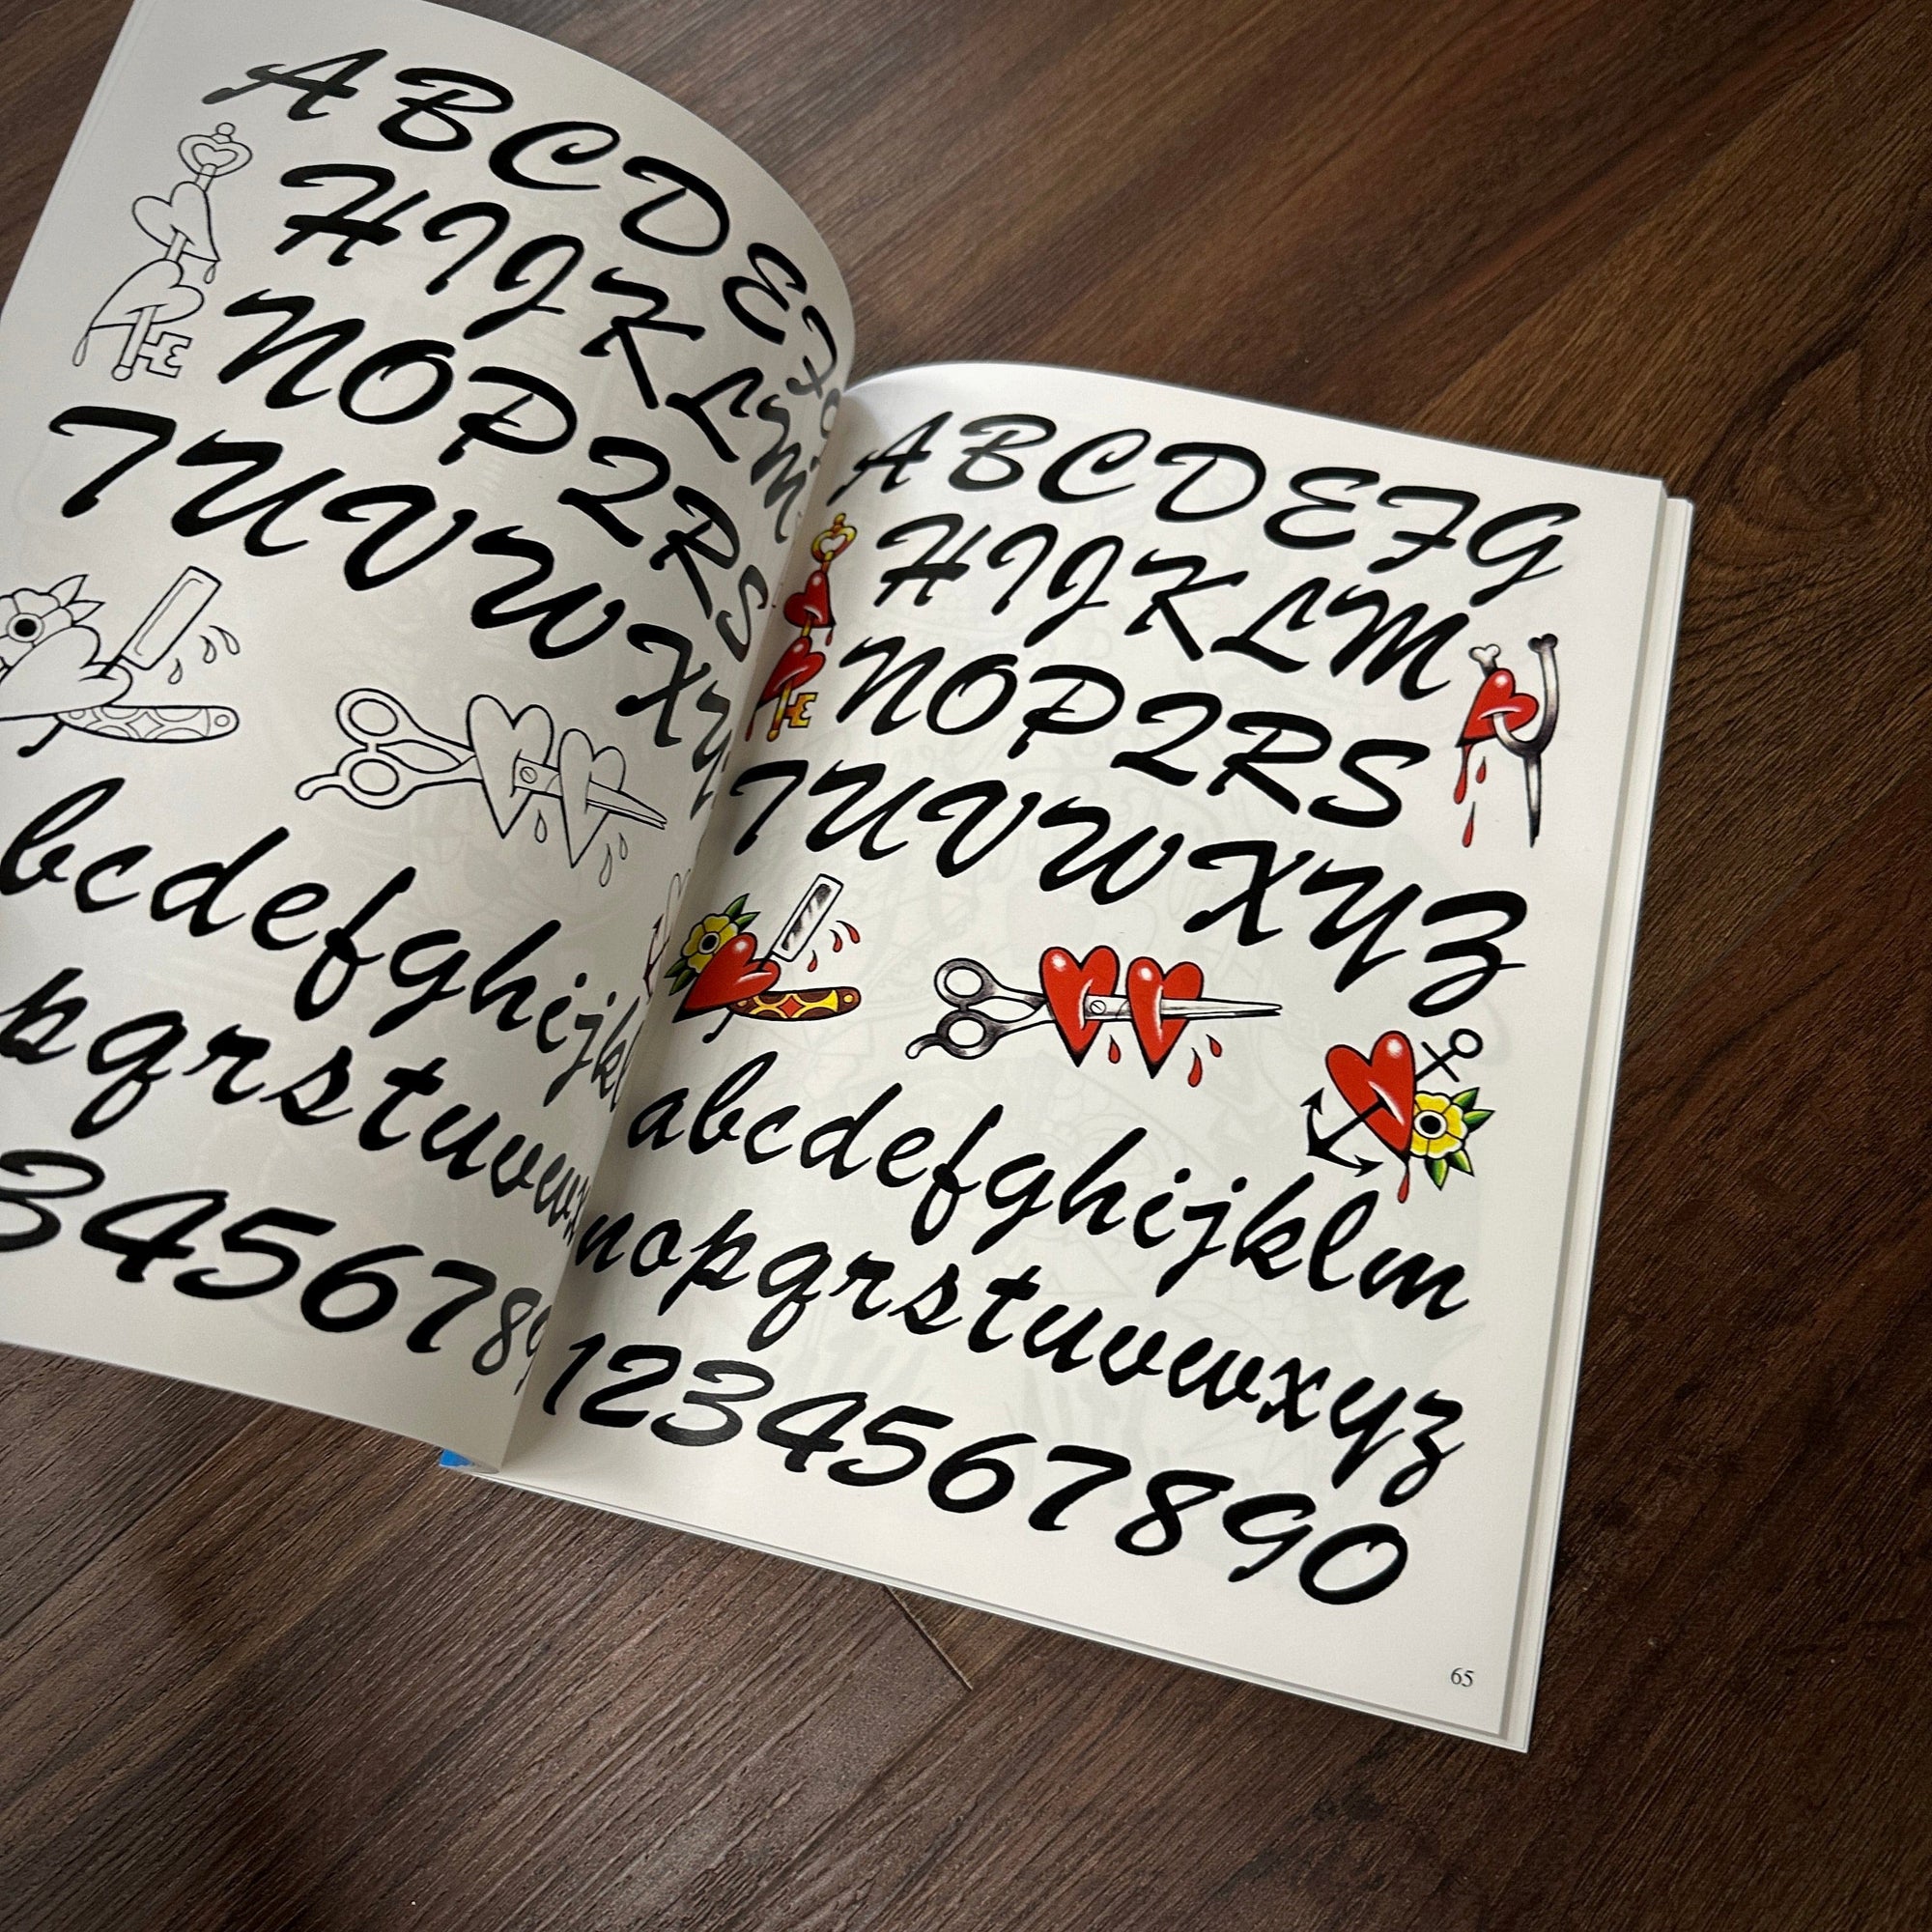 ABCDEFG
HIJKLM
NOPQRS
TUVWXYZ
bcdefghijkl
pqrstuvwx
3456789
ABCDEFG
HIJKLM
NOPQRS
TUVWXYZ
abcdefghijklm
nopqrstuvwxyz
1234567890
65